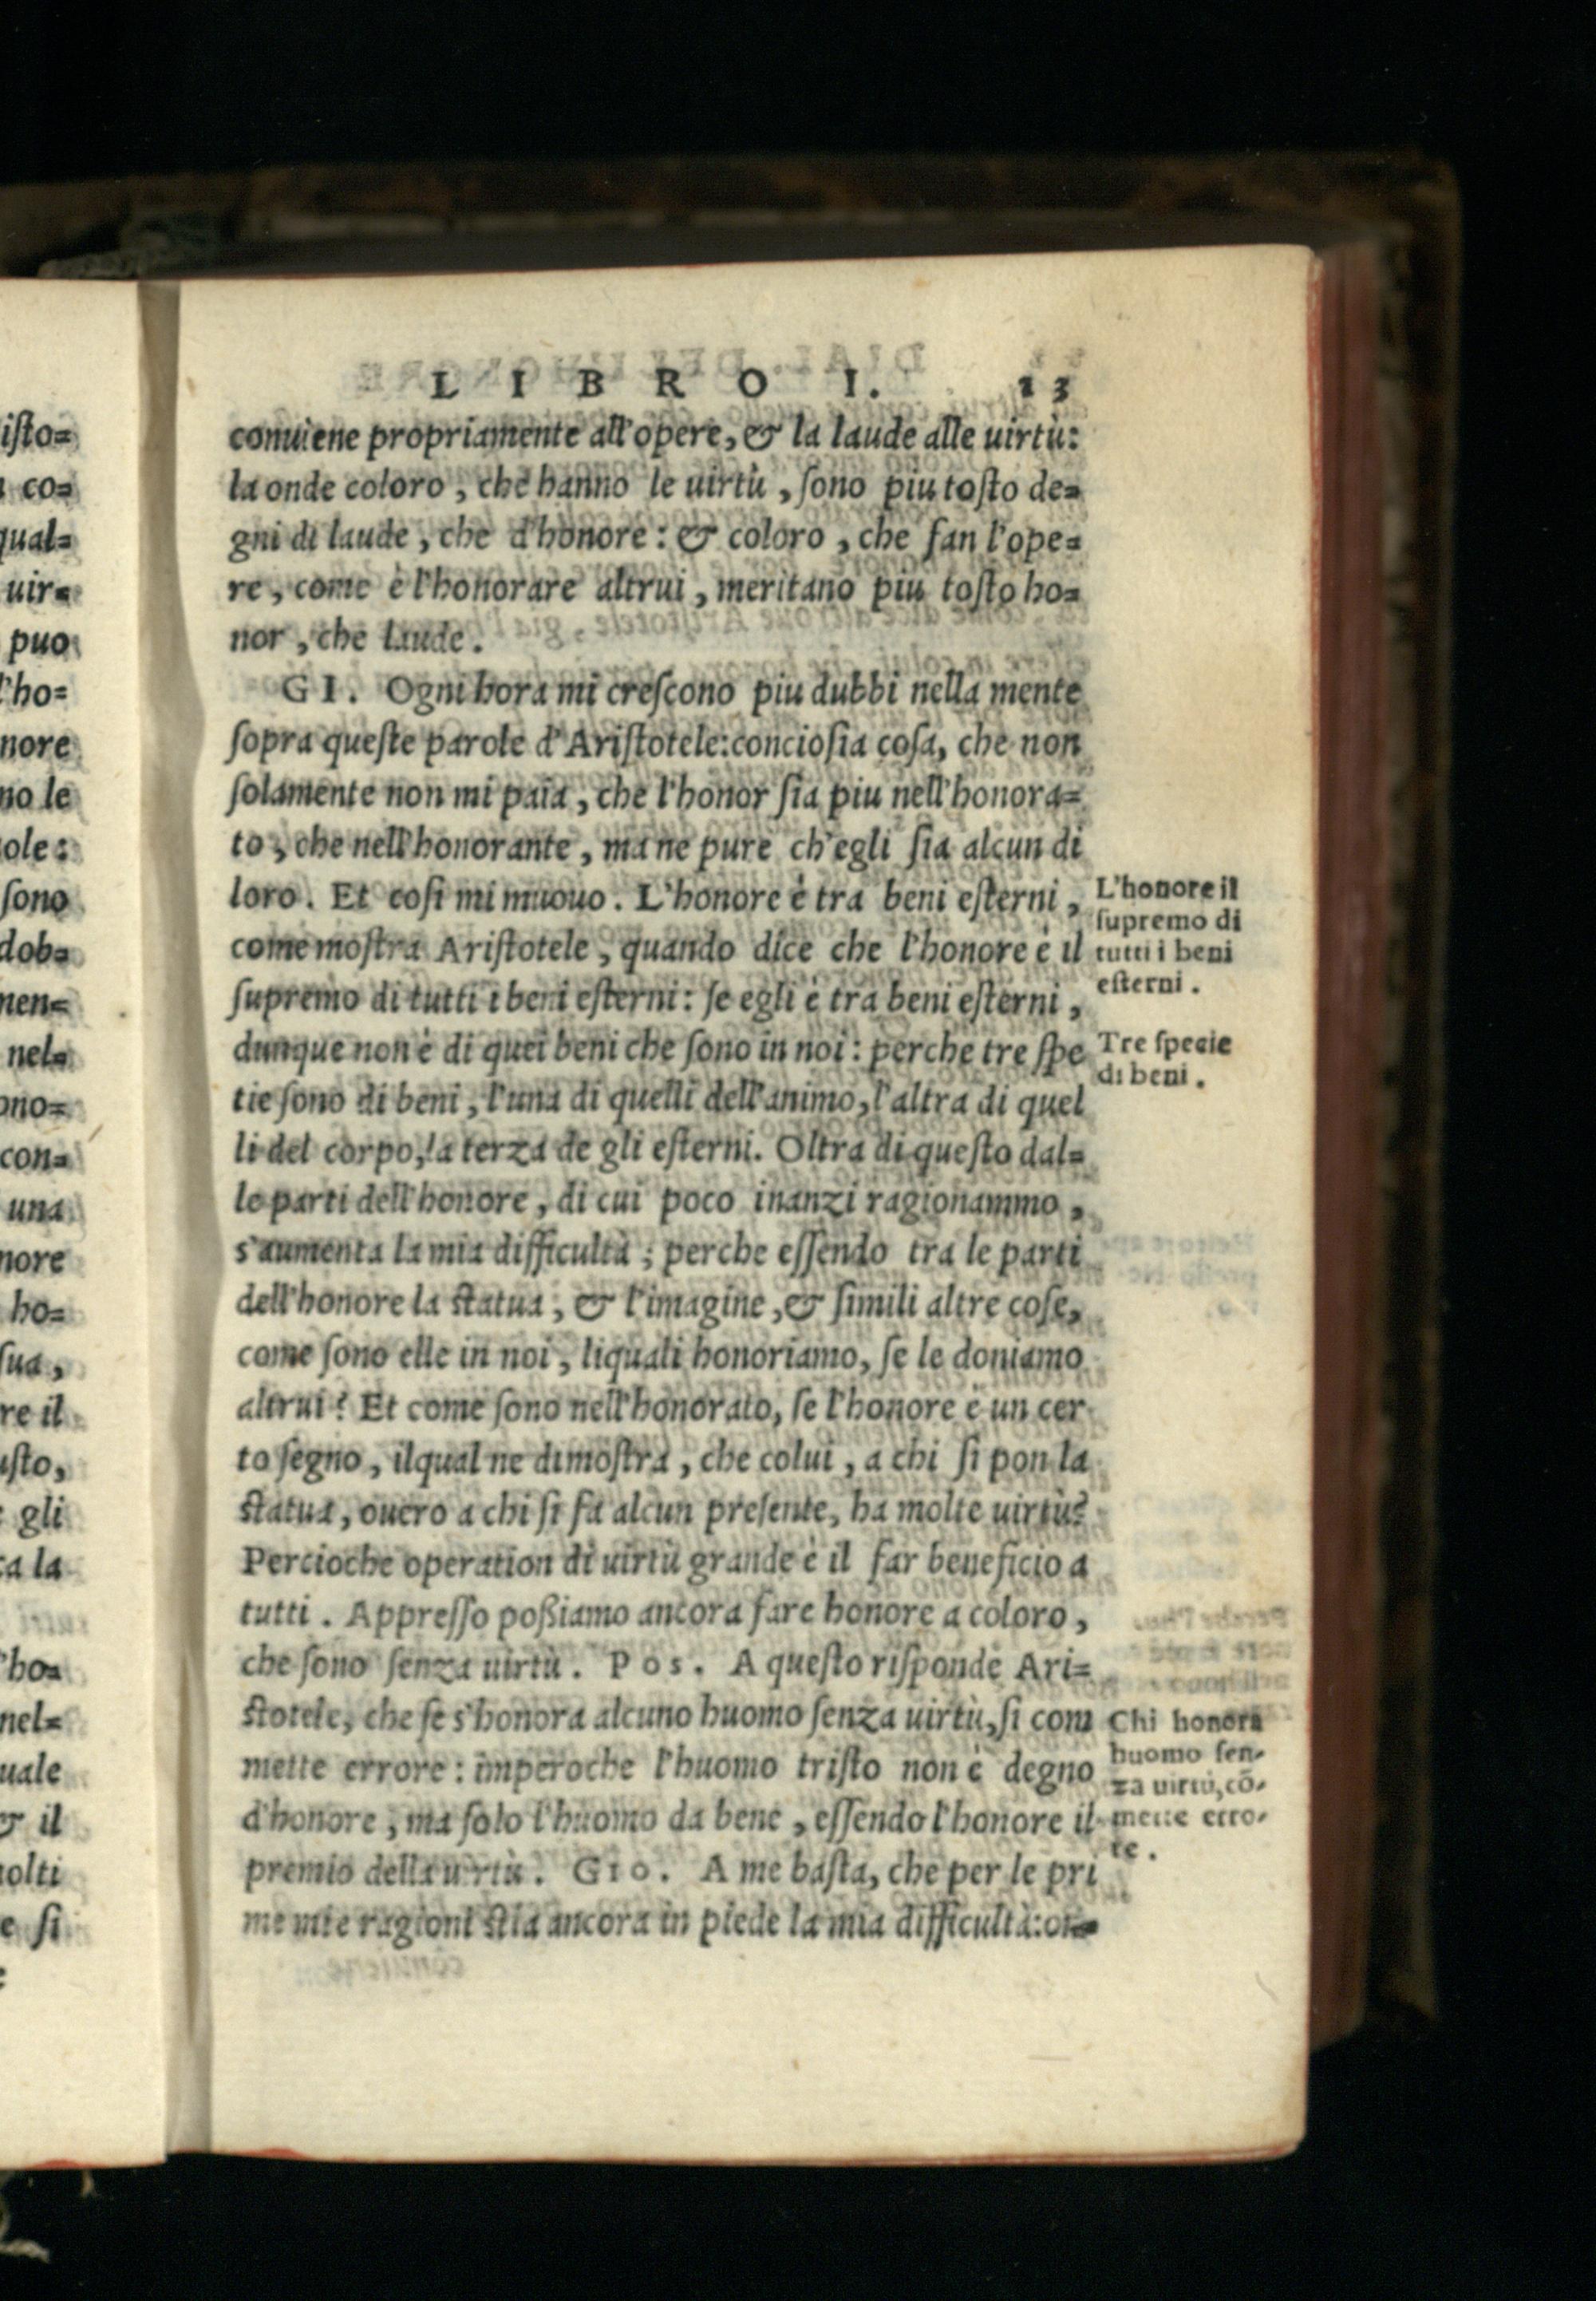 LIBRO I. 13
conuiene propriamente all'opere, & la laude alle uirtù:
la onde coloro, che hanno le uirtù, ſono piu toſto de=
gni di laude, che d'honore: & coloro, che fan l'ope=
re, come è l'honorare altrui, meritano piu toſto ho=
nor, che laude.
GI. Ogni hora mi creſcono piu dubbi nella mente
ſopra queſte parole d'Ariſtotele: concioſia coſa, che non
ſolamente non mi paia, che l'honor ſia piu nell'honora=
to, che nell'honorante, ma ne pure ch'egli ſia alcun di
loro. Et coſi mi muouo. L'honore è tra beni eſterni,
come moſtra Ariſtotele, quando dice che l'honore è il
ſupremo di tutti i beni eſterni: ſe egli è tra beni eſterni,
dunque non è di quei beni che ſono in noi: perche tre ſpe
tie ſono di beni, l'una di quelli dell'animo, l'altra di quel
li del corpo, la terza de gli eſterni. Oltra di queſto dal=
le parti dell'honore, di cui poco inanzi ragionammo,
s'aumenta la mia difficultà; perche eſſendo tra le parti
dell'honore la ſtatua, & l'imagine, & ſimili altre coſe,
come ſono elle in noi, liquali honoriamo, ſe le doniamo
altrui? Et come ſono nell'honorato, ſe l'honore è un cer
to ſegno, ilqual ne dimoſtra, che colui, a chi ſi pon la
ſtatua, ouero a chi ſi fa alcun preſente, ha molte uirtù?
Percioche operation di uirtù grande è il far beneficio a
tutti. Appreſſo poßiamo ancora fare honore a coloro,
che ſono ſenza uirtù. Pos. A queſto riſponde Ari=
ſtotele, che ſe s'honora alcuno huomo ſenza uirtù, ſi com
mette errore: imperoche l'huomo triſto non è degno
d'honore, ma ſolo l'huomo da bene, eſſendo l'honore il
premio della uirtù. Gio. A me baſta, che per le pri
me mie ragioni ſtia ancora in piede la mia difficultà:
L'honore il
ſupremo di
tutti i beni
eſterni.
Tre ſpecie
di beni.
Chi honora
huomo ſen-
za uirtù, cō-
mette erro-
re.
iſto=
co=
qual=
uir=
puo
l'ho=
nore
no le
ole:
ſono
dob=
men=
nel=
ono=
con=
una
nore
ho=
ſua,
re il
uſto,
gli
ta la
l'ho=
nel=
uale
& il
molti
e ſi